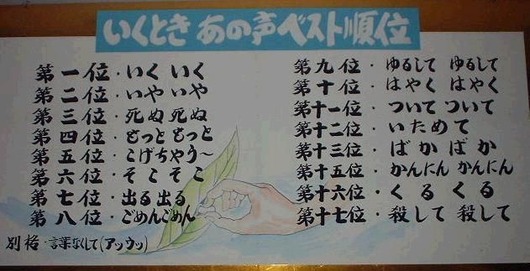 いくとき あの声ベスト順位
第一位・いく いく
第二位・いや いや
第三位・死ぬ 死ぬ
第四位・もっと もっと
第五位・こげちゃう〜
第六位・そこ そこ
第七位・出る 出る
第八位・ごめんごめん
別格・言葉なくして(アッウッ)
第九位・ゆるして ゆるして
第十位・はやく はやく
第十一位・ついて ついて
第十二位・いためて
第十三位・ばか ばか
第十五位・かんにん かんにん
第十六位・くる くる
第十七位・殺して 殺して